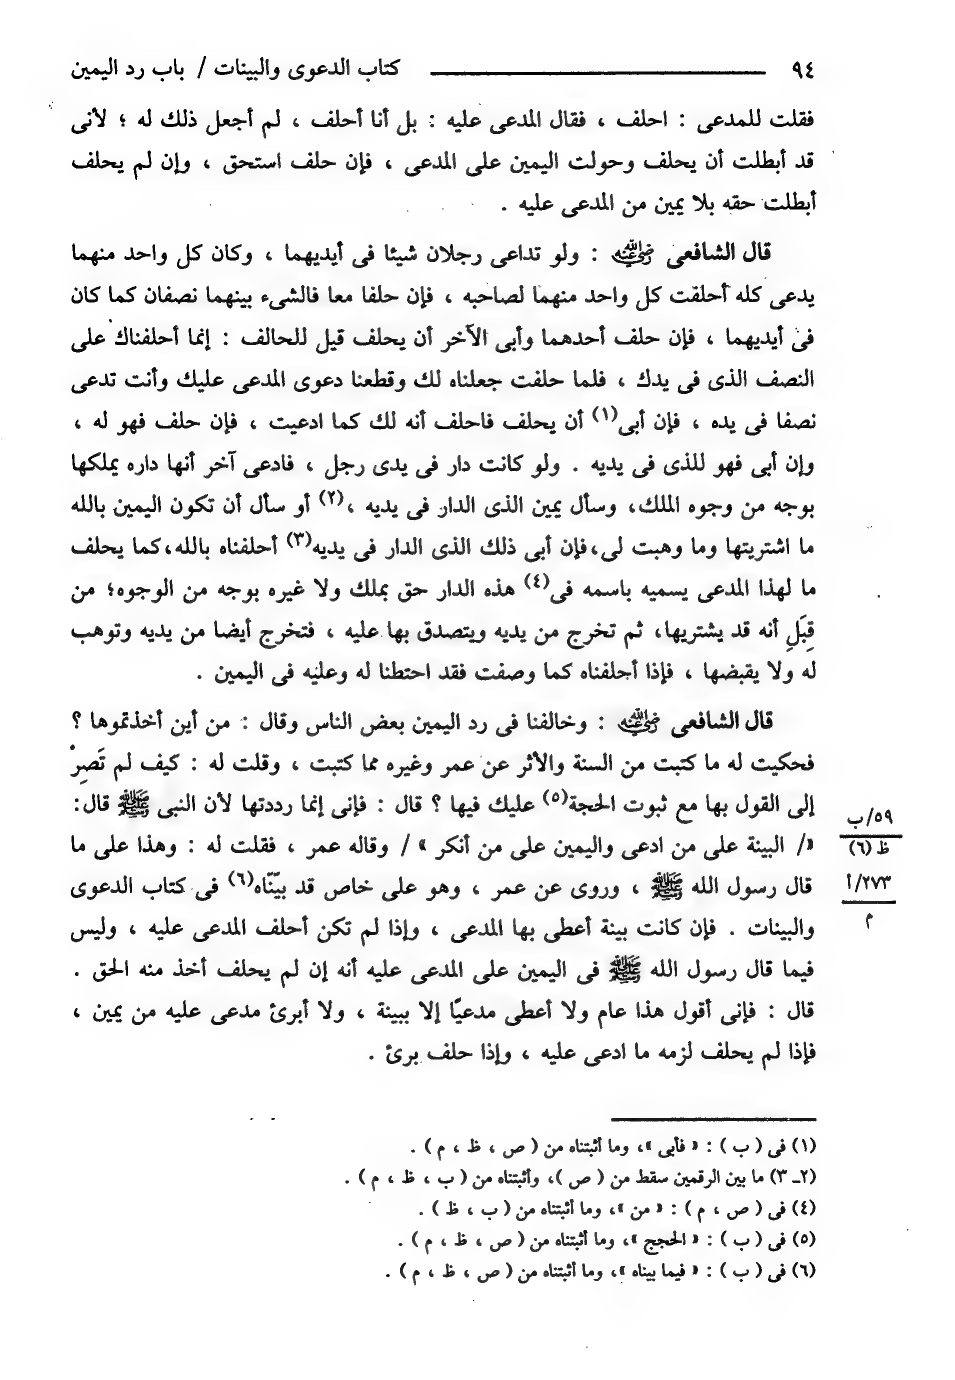 ٩٤ ــــــــــــــــــــ كتاب الدعوى والبينات / باب رد اليمين
فقلت للمدعى : احلف ، فقال المدعى عليه : بل أنا أحلف ، لم أجعل ذلك له ؛ لأنى
قد أبطلت أن يحلف وحولت اليمين على المدعى ، فإن حلف استحق ، وإن لم يحلف
أبطلت حقه بلا يمين من المدعى عليه .
قال الشافعى رضي الله عنه : ولو تداعى رجلان شيئا فى أيديهما ، وكان كل واحد منهما
يدعى كله أحلفت كل واحد منهما لصاحبه ، فإن حلفا معا فالشىء بينهما نصفان كما كان
فى أيديهما ، فإن حلف أحدهما وأبى الآخر أن يحلف قيل للحالف : إنما أحلفناك على
النصف الذى فى يدك ، فلما حلفت جعلناه لك وقطعنا دعوى المدعى عليك وأنت تدعى
نصفا فى يده ، فإن أبى(١) أن يحلف فاحلف أنه لك كما ادعيت ، فإن حلف فهو له ،
وإن أبى فهو للذى فى يديه . ولو كانت دار فى يدى رجل ، فادعى آخر أنها داره يملكها
بوجه من وجوه الملك، وسأل يمين الذى الدار فى يديه ،(٢) أو سأل أن تكون اليمين بالله
ما اشتريتها وما وهبت لى،فإن أبى ذلك الذى الدار فى يديه(٣) أحلفناه بالله،كما يحلف
ما لهذا المدعى يسميه باسمه فى(٤) هذه الدار حق بملك ولا غيره بوجه من الوجوه؛ من
قِبَلِ أنه قد يشتريها، ثم تخرج من يديه ويتصدق بها عليه ، فتخرج أيضا من يديه وتوهب
له ولا يقبضها ، فإذا أحلفناه كما وصفت فقد احتطنا له وعليه فى اليمين .
قال الشافعى رضي الله عنه : وخالفنا فى رد اليمين بعض الناس وقال : من أين أخذتموها ؟
فحكيت له ما كتبت من السنة والأثر عن عمر وغيره مما كتبت ، وقلت له : كيف لم تَصِرْ
إلى القول بها مع ثبوت الحجة(٥) عليك فيها ؟ قال : فإنى إنما رددتها لأن النبى ﷺ قال:
«/ البينة على من ادعى واليمين على من أنكر » / وقاله عمر ، فقلت له : وهذا على ما
قال رسول الله ﷺ ، وروى عن عمر ، وهو على خاص قد بيّنّاه(٦) فى كتاب الدعوى
والبينات . فإن كانت بينة أعطى بها المدعى ، وإذا لم تكن أحلف المدعى عليه ، وليس
فيما قال رسول الله ﷺ فى اليمين على المدعى عليه أنه إن لم يحلف أخذ منه الحق .
قال : فإنى أقول هذا عام ولا أعطى مدعيًا إلا ببينة ، ولا أبرئ مدعى عليه من يمين ،
فإذا لم يحلف لزمه ما ادعى عليه ، وإذا حلف برئ .
٥٩/ب
ظ (٦)
٢٧٣/أ
م
(١) فى ( ب ) : « فأبى »، وما أثبتناه من ( ص ، ظ ، م ) .
(٢ـ ٣) ما بين الرقمين سقط من ( ص )، وأثبتناه من ( ب ، ظ ، م ) .
(٤) فى ( ص ، م ) : « من »، وما أثبتناه من ( ب ، ظ ) .
(٥) فى ( ب ) : « الحجج »، وما أثبتناه من ( ص ، ظ ، م ) .
(٦) فى ( ب ) : « فيما بيناه »، وما أثبتناه من ( ص ، ظ ، م ) .